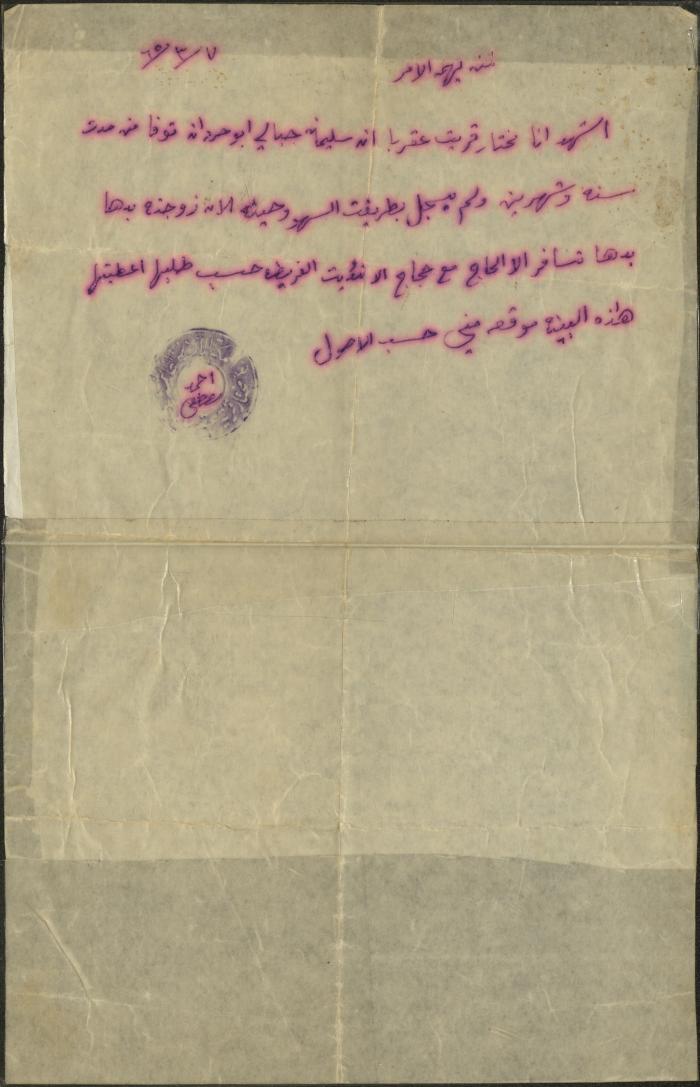 لمن يهمه الامر
٧/٣/٦٥
اشهد انا مختار قريت عقربا ان سليمان جبالي ابو حردان توفا من مدت
سنه وشهرين ولم يسجل بطريقت السهو وحيث الان زوجته بدها
بدها تسافر الا الحاج مع حجاج الا الفريظه حسب طلبها اعطيتها
هاذه البينه موقعه مني حسب الاصول
احمد
مصطفى